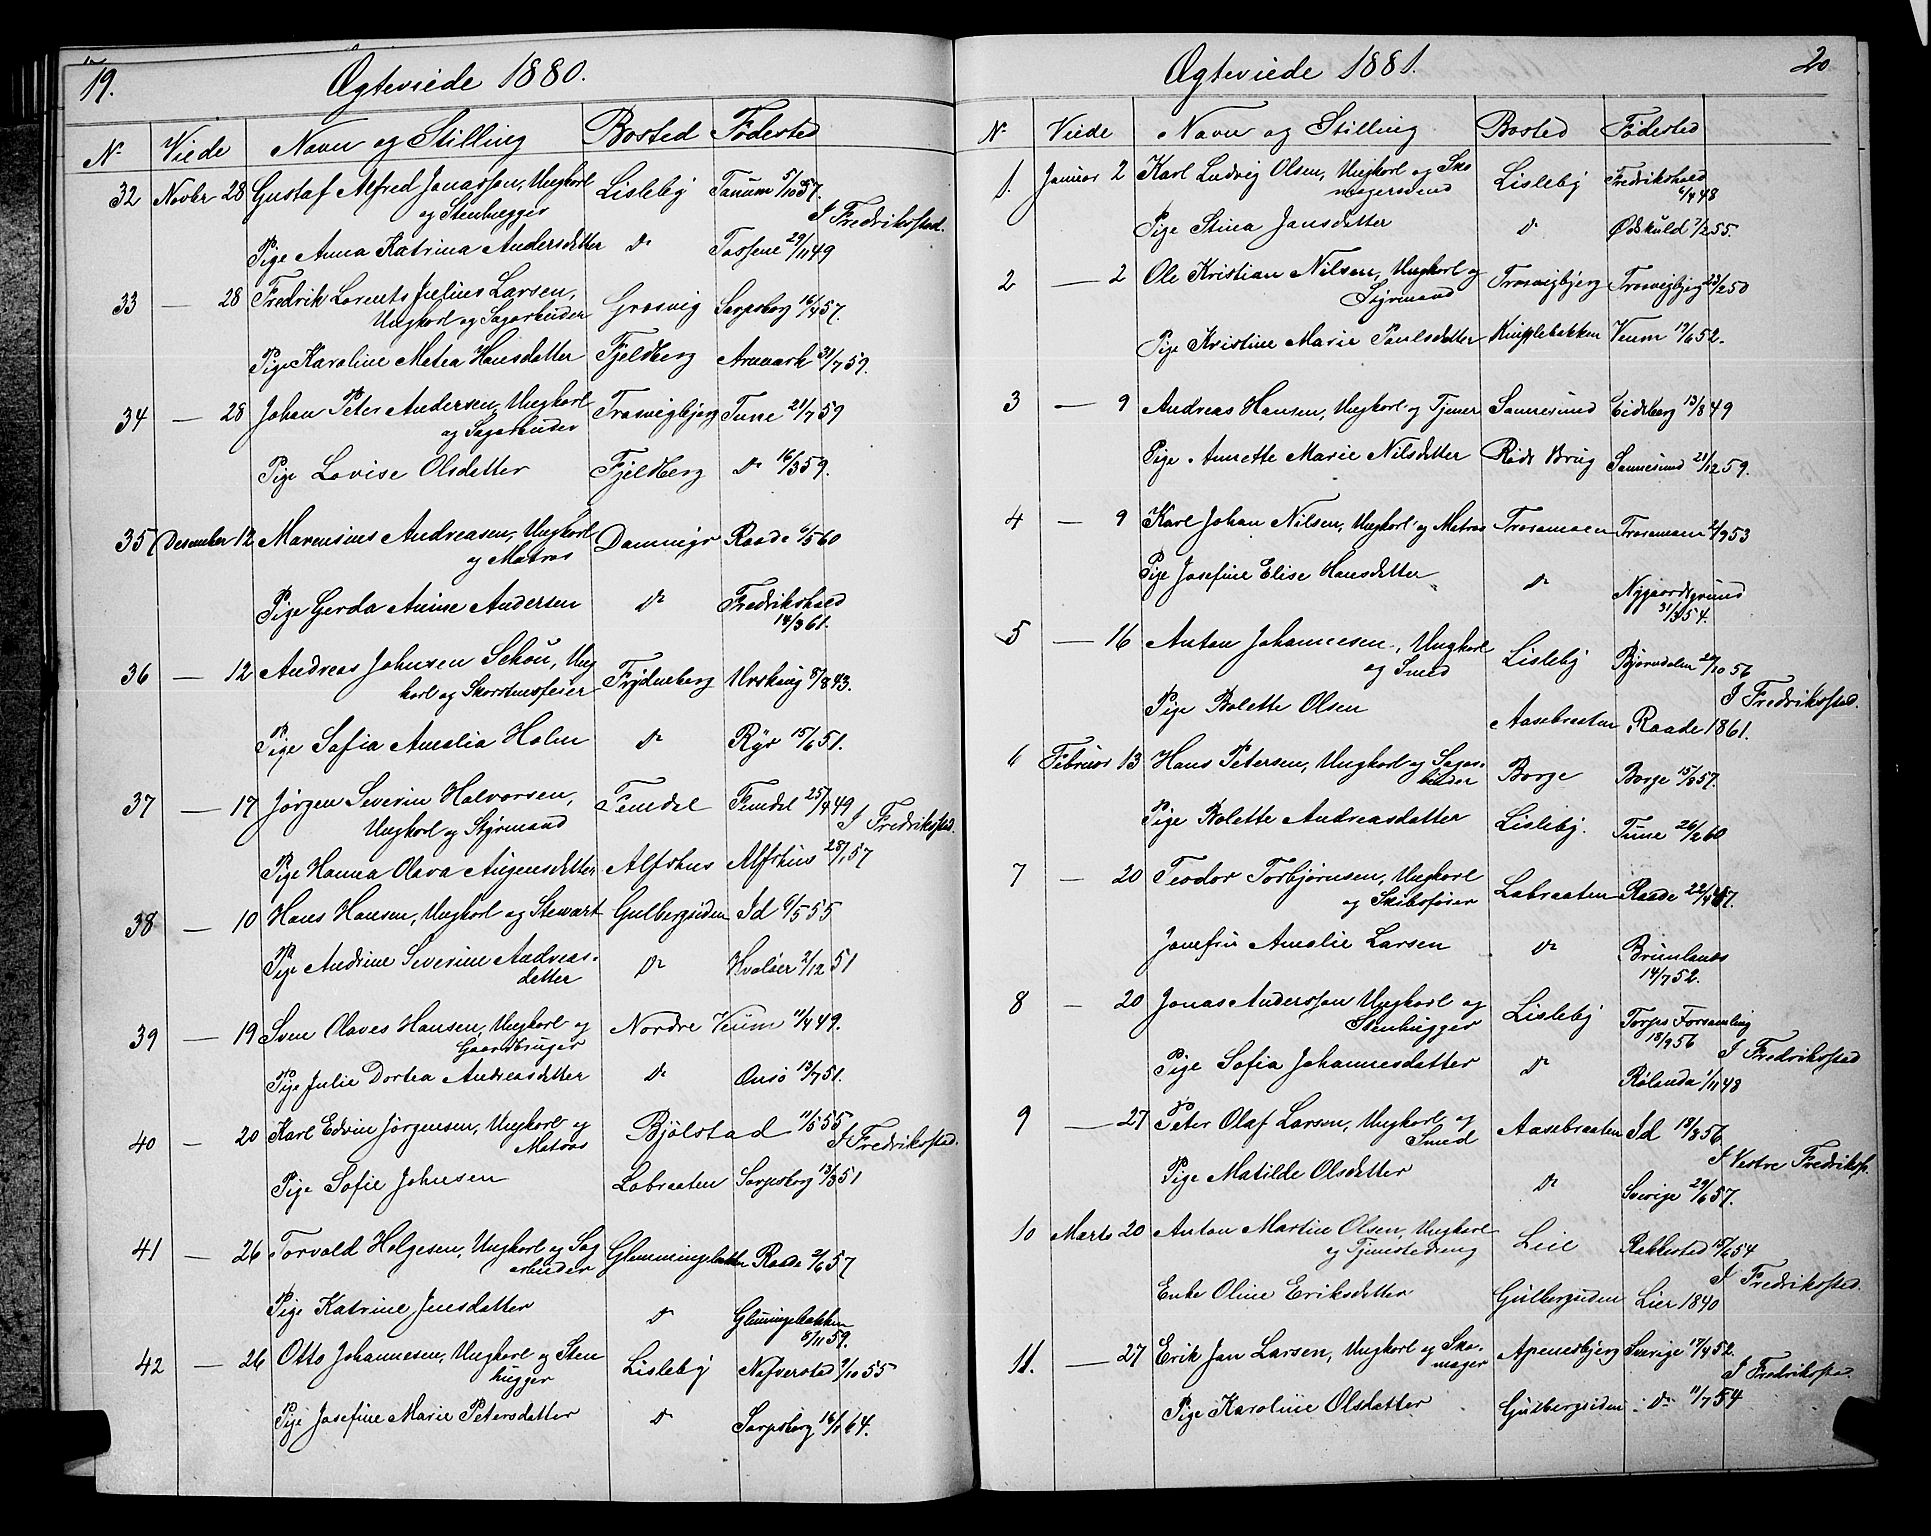 19.
Ægteviede 1880.
N. Viede Navn og Stilling Bosted Fødested
32 Novbr 28 Gustaf Alfred Jonasson, Ungkarl Lisleby Tanum 5/10 57.
og Stenhugger I Fredrikstad.
Pige Anna Katrina Andersdatter do Tossene 29/11 49
33 — 28 Fredrik Lorents Julius Larsen, Gresvig Sarpsborg 16/4 57.
Ungkarl og Sagarbeider
Pige Karoline Matea Hansdatter Fjeldberg Aremark 31/7 59.
34 — 28 Johan Peter Andersen, Ungkarl Trosvigbjerg Tune 21/7 59
og Sagarbeider
Pige Lovise Olsdatter Fjeldberg do 16/3 59.
35 Desember 12 Marensius Andreasen, Ungkarl Dammigr Raade 6/5 60
og Matros
Pige Gerda Anine Andersen do Fredrikshald
14/3 61.
36 — 12 Andreas Johnsen Schou, Ung Frydenberg Urskoug 8/8 43.
karl og Skorstensfeier
Pige Sofia Amalia Holm do Ryr 15/6 51.
37 — 17 Jørgen Severin Halvorsen, Femdal Femdal 25/4 49
Ungkarl og Styrmand I Fredrikstad.
Pige Hanna Olava Augensdatter Alfshus Alfshus 28/1 57
38 — 10 Hans Hansen, Ungkarl og Stewart Gulbergsiden Id 6/5 55
Pige Andrine Severine Andreas- do Hvaløer 2/12 51
datter
39 — 19 Sven Olaves Hansen, Ungkarl og Nordre Veum 11/4 49.
Gaardbruger
Pige Julie Dortea Andreasdatter do Onsø 13/7 51.
40 — 20 Karl Edvin Jørgensen, Ungkarl og Bjølstad 11/5 55
Matros I Fredrikstad.
Pige Sofie Johnsen Labraaten Sarpsborg 13/3 51
41 — 26 Torvald Helgesen, Ungkarl og Sag Glemmingebakken Raade 2/6 57
arbeider
Pige Katrine Jensdatter do Glemingebakken
8/11 59.
42 — 26 Otto Johannesen, Ungkarl og Sten Lisleby Nafverstad 9/10 55
hugger
Pige Josefine Marie Petersdatter do Sarpsborg 16/1 64.
20
Ægteviede 1881.
N. Viede Navn og Stilling Bosted Fødested
1. Januar 2 Karl Ludvig Olsen, Ungkarl og Sko Lisleby Fredrikshald
magersvend 6/4 48
Pige Stina Jansdatter do Ødskuld 7/2 55.
2 — 2 Ole Kristian Nilsen, Ungkarl og Trosvigbjerg Trosvigbjerg 23/2 50
Styrmand
Pige Kristine Marie Paulsdatter Kirkebakken Veum 19/6 52.
3 — 9 Andreas Hansen, Ungkarl og Tjener Sannesund Eidsberg 13/8 49
Pige Annette Marie Nilsdatter Røds Brug Sannesund 21/12 59.
4 — 9 Karl Johan Nilsen, Ungkarl og Matros Trosemoen Trosemoen 2/9 53
Pige Josefine Elise Hansdatter do Nygaardsgrund
31/3 54.
5 — 16 Anton Johannesen, Ungkarl Lisleby Bjørndalen 20/10 56
og Smed I Fredrikstad.
Pige Bolette Olsen Aasebraaten Raade 1861.
6 Februar 13 Hans Petersen, Ungkarl og Sagar- Borge Borge 15/8 57.
beider
Pige Bolette Andreasdatter Lisleby. Tune 26/2 60
7 — 20 Teodor Torbjørnsen, Ungkarl Labraaten Raade 22/4 47.
og Skibsfører
Jomfru Amalie Larsen do Brunlanes
14/7 52.
8 — 20 Jonas Andersson Ungkarl og Lisleby Torps Forsamling
Stenhugger 18/9 56 I Fredrikstad
Pige Sofia Johannesdatter do Rølanda 1/11 48
9 — 27 Peter Olaf Larsen, Ungkarl og Aasebraaten Id 18/3 56
Smed I Vestre Fredrikst.
Pige Matilde Olsdatter do Sverige 29/6 57.
10 Marts 20 Anton Martin Olsen, Ungkarl Leie Rakkestad 15/6 54
og Tjenestedreng I Fredrikstad.
Enke Oline Eriksdatter Gulbergsiden Lier 1840
11. — 27 Erik Jan Larsen, Ungkarl og Sko- Apenesbjerg Sverige 17/4 52.
mager I Fredriksta.
Pige Karoline Olsdatter Gulbergsiden do 11/7 54